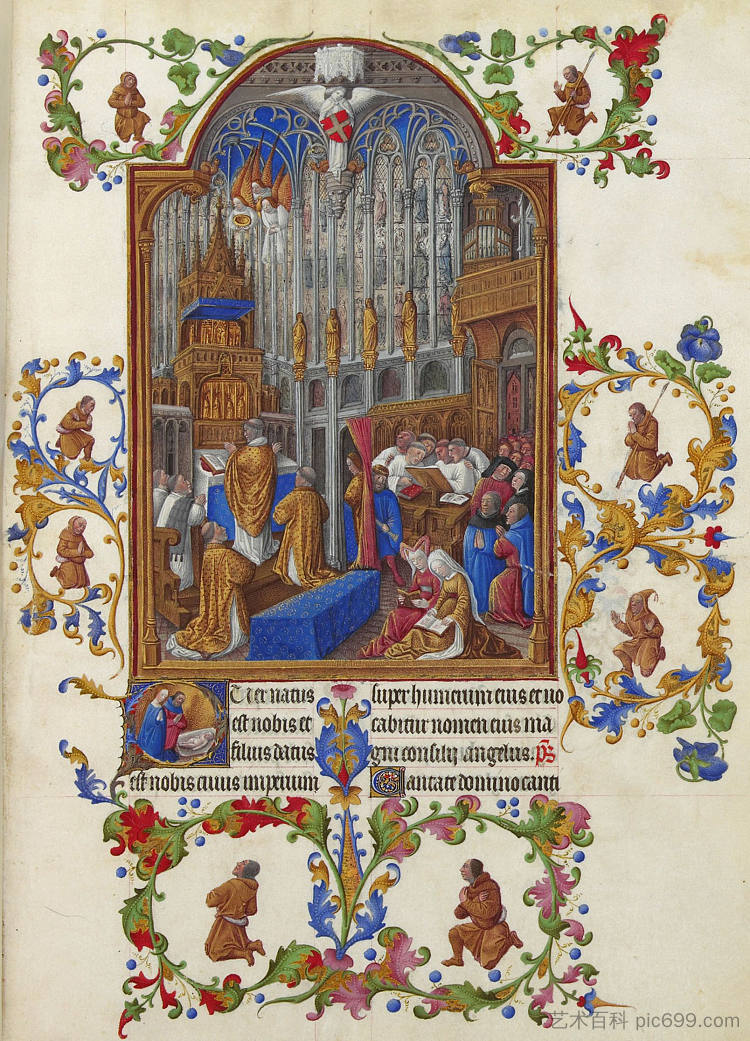 PUer natus
est nobis et
filius datus
est nobis cuius imperium
super humerum eius et uo
cabitur nomen eius ma
gni consilij angelus. ps
Cantate domino canti
艺术百科 pic699.com